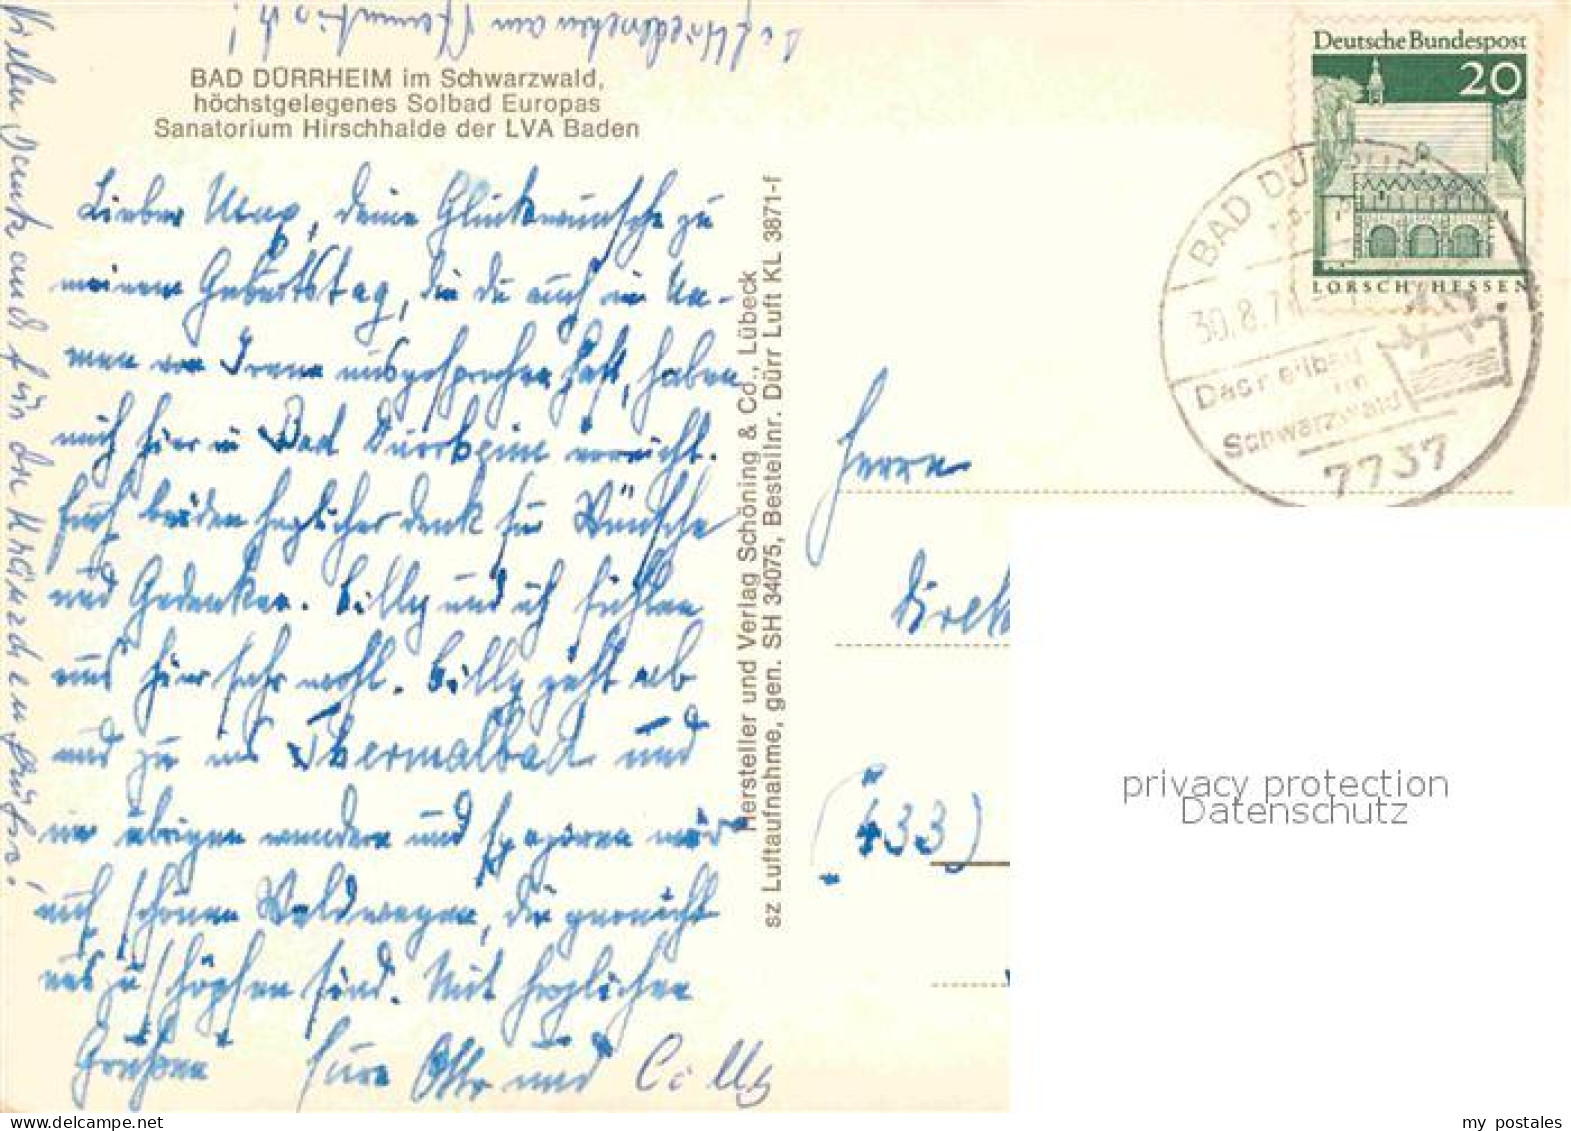 BAD DÜRRHEIM im Schwarzwald,
höchstgelegenes Solbad Europas
Sanatorium Hirschhalde der LVA Baden
Lieber Max, deine Glückwünsche zu
meinem Geburtstag, die du auch im Na-
men von Irene ausgesprochen hast, haben
mich hier in Bad Dürrheim erreicht.
Euch beiden herzlichen Dank für Wünsche
und Gedenken. Cilly und ich fühlen
uns hier sehr wohl. Cilly geht ab
und zu ins Thermalbad und
im übrigen wandern und spazieren wir
auf schönen Waldwegen, die garnicht
auszuschöpfen sind. Mit herzlichen
Grüßen Eure Otto und Cilly
Vielen Dank auch für die Kränzchengrüße!
Hersteller und Verlag Schöning & Co., Lübeck
sz Luftaufnahme, gen. SH 34075, Bestellnr. Dürr Luft KL 3871-f
Deutsche Bundespost
20
LORSCH/HESSEN
BAD DÜ
30.8.71
Das Heilbad
im
Schwarzwald
7737
Herrn
Direk
(433)
privacy protection
Datenschutz
my_postales